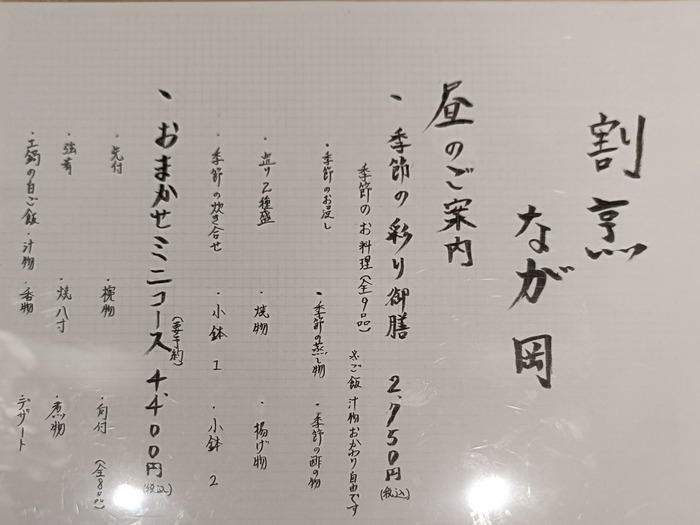 割烹
なが岡
昼のご案内
・季節の彩り御膳 2,750円(税込)
季節のお料理(全9品) ※ご飯 汁物おかわり自由です
・季節のお浸し ・季節の蒸し物 ・季節の酢の物
・造り2種盛 ・焼物 ・揚げ物
・季節の炊き合せ ・小鉢1 ・小鉢2
・おまかせミニコース 4,400円(税込)
(要予約)
・先付 ・椀物 ・向付 (全8品)
・強肴 ・焼八寸 ・煮物
・土鍋の白ご飯・汁物・香物 デザート